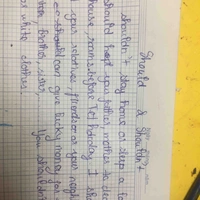 Should & Shouldn't
shouldn't stay home or sleep a lo
should help your father, mother to clea
house, room before Tet holiday. I sh
your relatives, friends or your neighbo
can give lucky money for
clothes, You shouldn't
or white clothes.